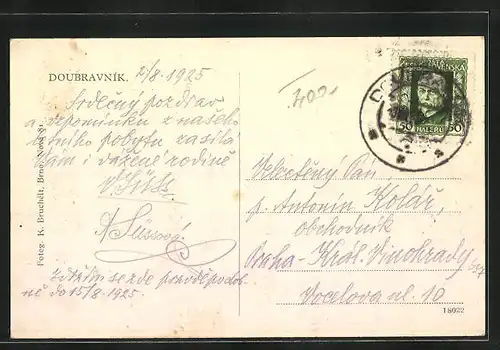 DOUBRAVNÍK. 2/8. 1925
Srdečný pozdrav
a vzpomínku z našeho
letního pobytu zasílá
Vám i vážené rodině
VSüss
A Süssová
Zdržím se zde pozděpodob
ně do 15/8. 1925.
Fotog. K. Bruchált, Brno
400.-
ČESKOSLOVENSKA
50 HALÉŘŮ 50
Velectěný Pán,
p. Antonín Kolář,
obchodník
Praha - Král. Vinohrady
Vocelova ul. 10
18022